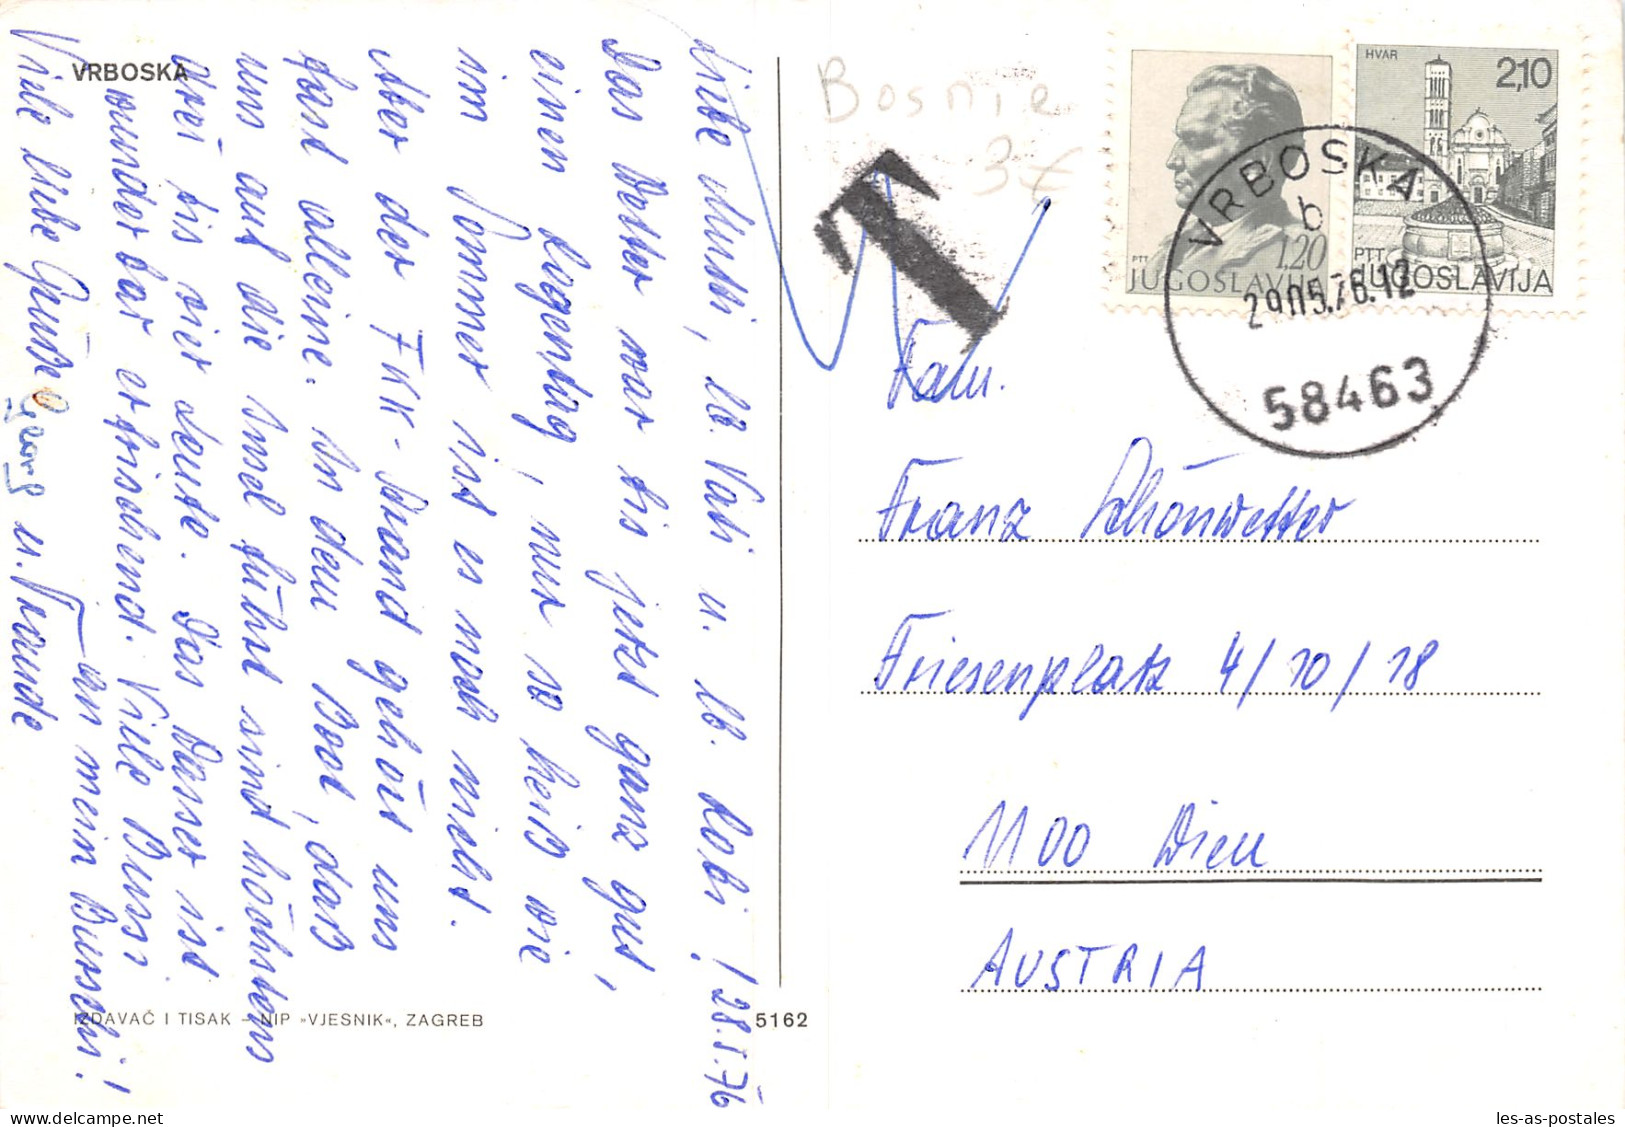 VRBOSKA
Liebe Mutti, lb. Vati u. lb. Robi! 28.5.76
Das Wetter war bis jetzt ganz gut,
einen Regentag, nur so heiß wie
im Sommer ist es noch nicht.
Aber der FKK-Strand gehört uns
fast alleine. In dem Boot, daß
uns auf die Insel führt sind höchstens
drei bis vier Leute. Das Wasser ist
wunderbar erfrischend. Viele Bussi
für mein Burschi!
Viele liebe Grüße
Georg u. Traude
IZDAVAČ I TISAK – NIP »VJESNIK«, ZAGREB
5162
Bosnie
3€
T
PTT 1,20
JUGOSLAVIJA
HVAR
2,10
PTT
JUGOSLAVIJA
VRBOSKA
b
29.05.76.12
58463
Fam.
Franz Schönwetter
Friesenplatz 4/10/18
1100 Wien
AUSTRIA
les-as-postales